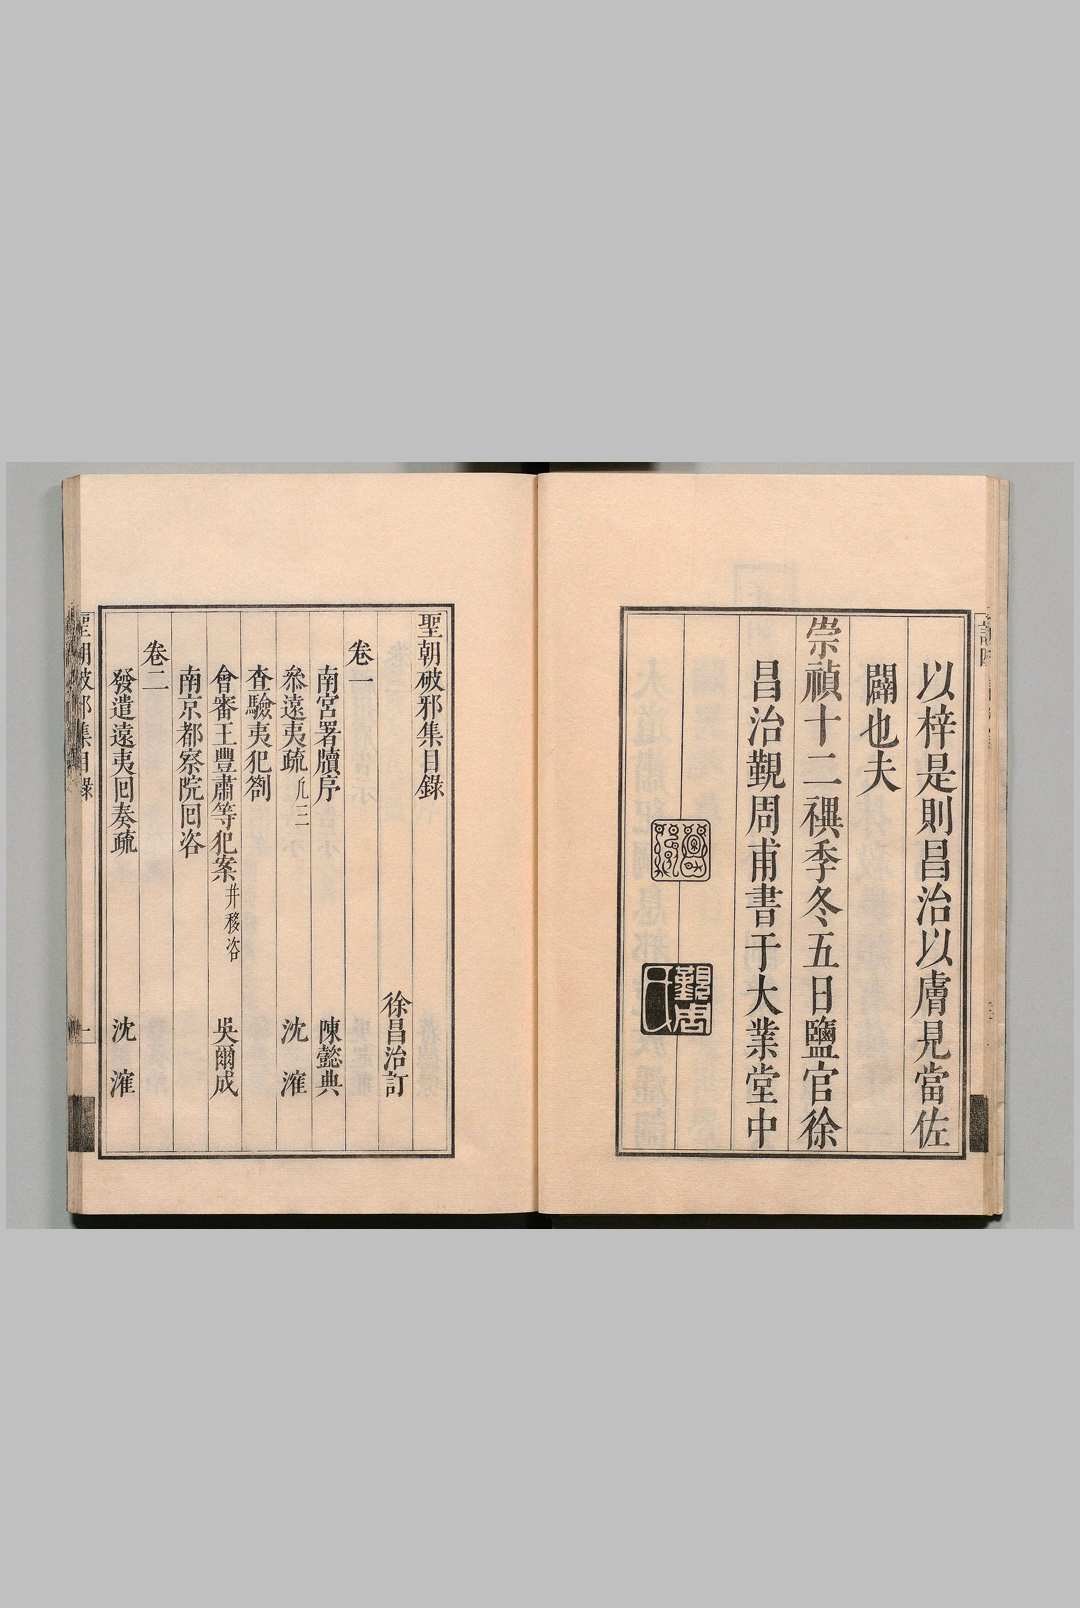 以梓是則昌治以膚見當佐
闢也夫
崇禎十二禩季冬五日鹽官徐
昌治覲周甫書于大業堂中
聖朝破邪集目錄
徐昌治訂
卷一
南宮署牘序 陳懿典
叅遠夷疏 凡三 沈㴶
查驗夷犯劄
會審王豐肅等犯案 并移咨 吳爾成
南京都察院囘咨
卷二
發遣遠夷囘奏疏 沈㴶
聖朝破邪集目錄 一